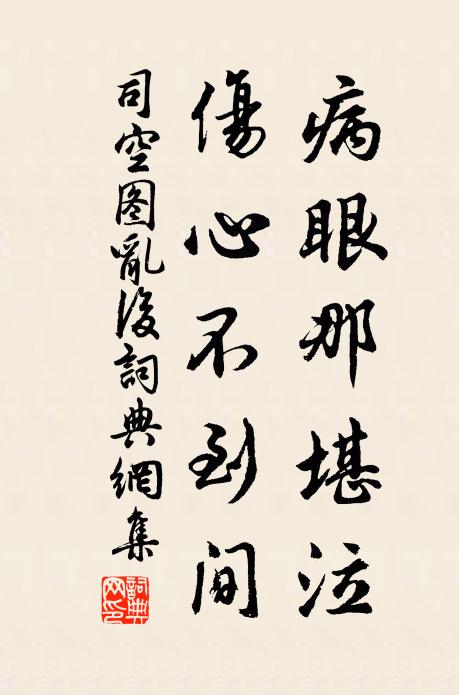 病眼那堪泣
傷心不到間
司空图亂後詞典網集
詞典网印